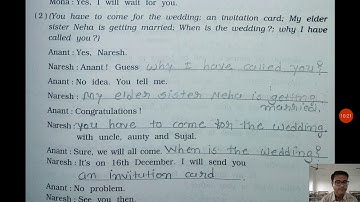 Mona: Yes, I will wait for you.
(2) (You have to come for the wedding; an invitation card; My elder
sister Neha is getting married; When is the wedding?; why I have
called you?)
Anant : Yes, Naresh.
Naresh : Anant! Guess why I have called you?
Anant : No idea. You tell me.
Naresh : My elder sister Neha is getting
married.
Anant : Congratulations!
Naresh you have to come for the wedding
with uncle, aunty and Sujal.
Anant : Sure, we will all come. When is the wedding?
Naresh : It's on 16th December. I will send you
an invitution card.
Anant : No problem.
Naresh : See you then.